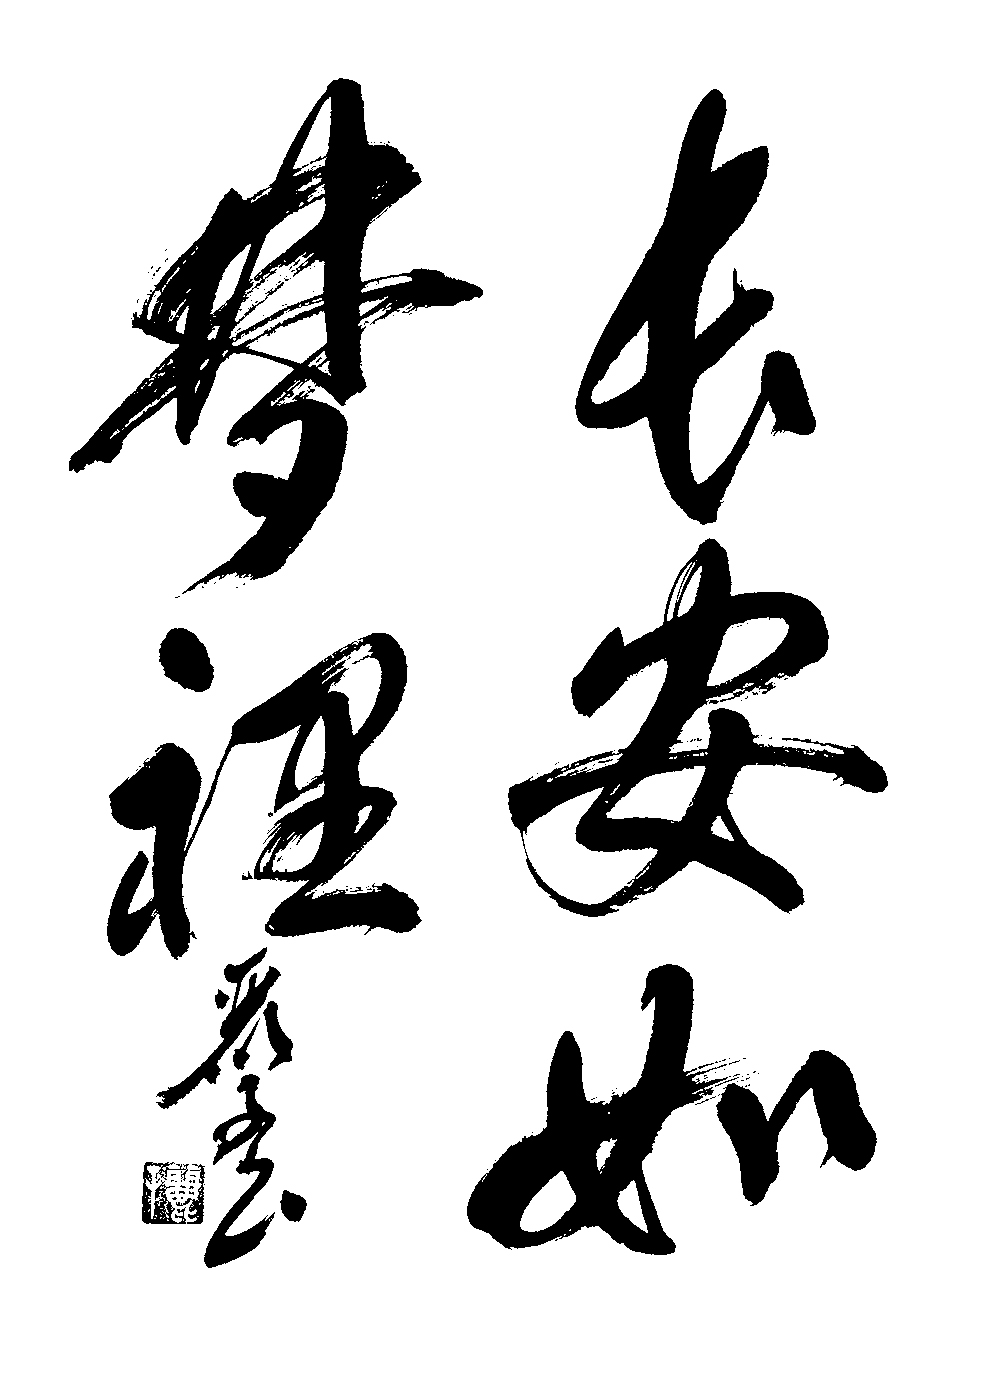 长安如
梦裡